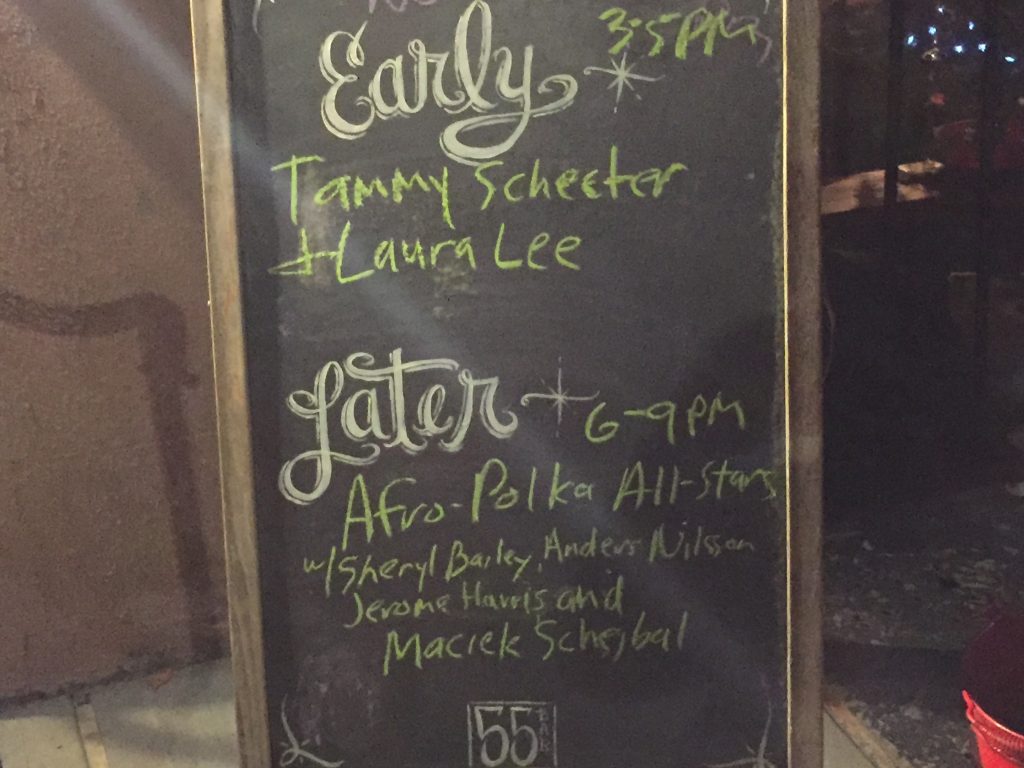 Early 3-5PM
Tammy Schecter
+ Laura Lee
Later 6-9PM
Afro-Polka All-Stars
w/Sheryl Bailey, Anders Nilsson
Jerome Harris and
Maciek Schejbal
55 BAR